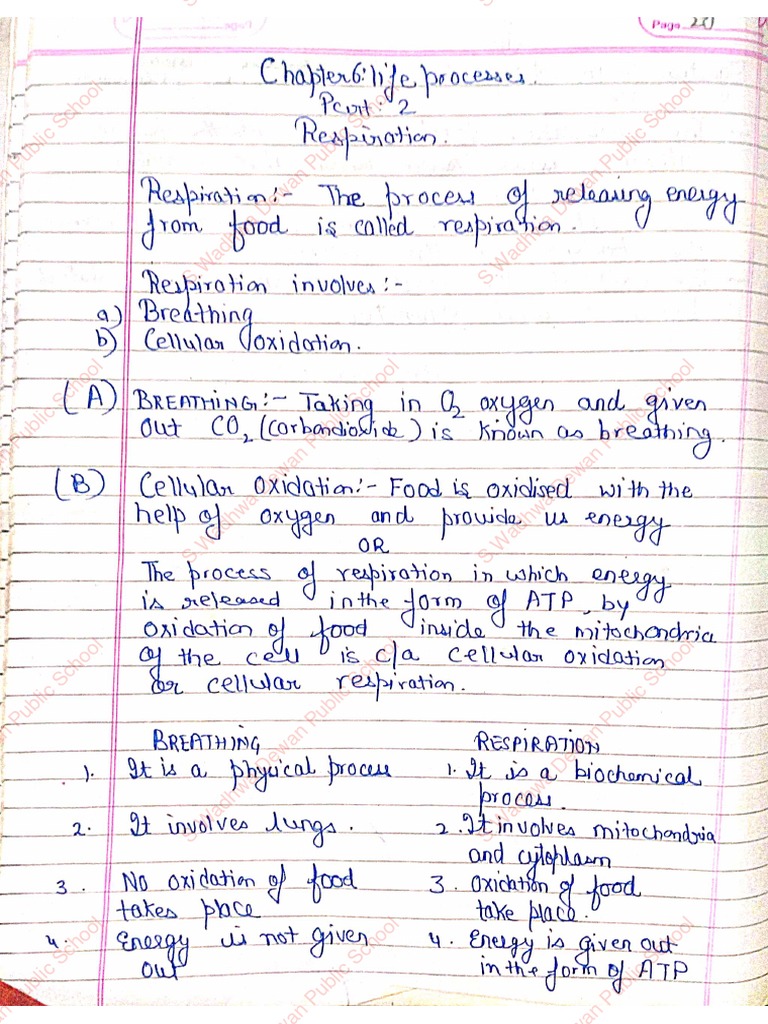 Page 20
Chapter 6: life processes.
Part: 2
Respiration.
Respiration:- The process of releasing energy
from food is called respiration.
Respiration involves:-
a) Breathing
b) Cellular oxidation.
(A) BREATHING:- Taking in O2 oxygen and given
out CO2 (carbondioxide) is known as breathing.
(B) Cellular oxidation:- Food is oxidised with the
help of oxygen and provide us energy
OR
The process of respiration in which energy
is released in the form of ATP, by
oxidation of food inside the mitochondria
of the cell is c/a cellular oxidation
or cellular respiration.
BREATHING RESPIRATION
1. It is a physical process 1. It is a biochemical
process.
2. It involves lungs. 2. It involves mitochondria
and cytoplasm
3. No oxidation of food 3. Oxidation of food
takes place take place.
4. Energy is not given 4. Energy is given out
out in the form of ATP
S.Wadhwa Dewan Public School